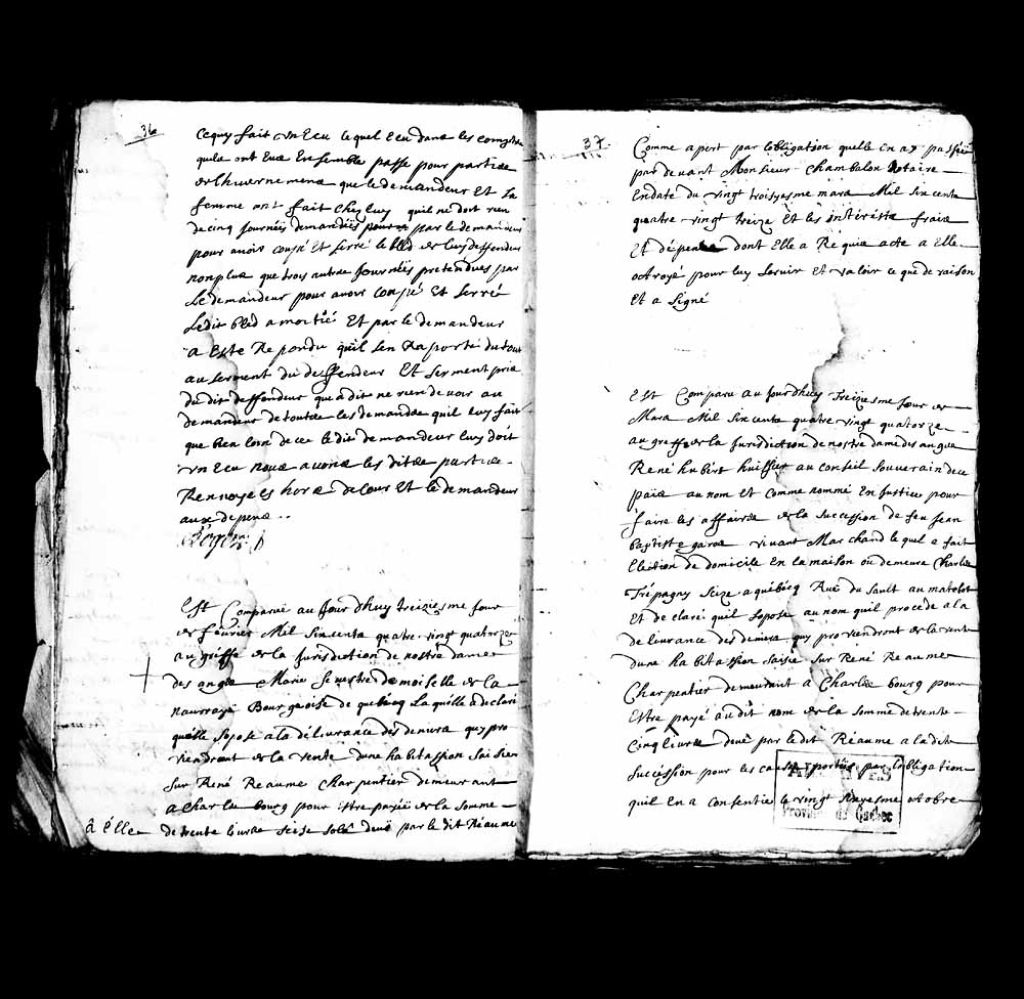 36
cequy fait un Ecu lequel Ecu dans les comptes
quils ont Eue Ensemble passé pour partie
de lhuvernemens que le demandeur Et sa
femme ont fait chez luy quil ne doit rien
de cinq Journéés demandéés par le demandeur
pour avoir coupé Et serré le bled de luy deffendeur
nonplus que trois autres Journéés pretendues par
Le demandeur pour avoir coupé Et serré
Ledit bled a moitié Et par le demandeur
a Esté Repondu quil sen Raporte du tout
au serment du deffendeur Et serment pris
du dit deffendeur qui a dit ne rien devoir au
demandeur de toutes les demandes quil luy fait
que bien loin de ce le dit demandeur luy doit
un Ecu nous avons les dites parties
Renvoyéés hors de Cour Et le demandeur
aux depens
Est Comparue au Jourdhuy treiziesme Jour
de fevrier Mil Six cents quatre vingt quatorze
au greffe de la Jurisdiction de nostre dame
des anges Marie Sevestre demoiselle de la
Bourgeoise de quebecq Laquélle a déclaré
quélle Sopose a la délivrance des deniers quy pro
viendront de la vente dune habitassion Saisie
Sur René Reaume Charpentier demeurant
a Charles bourg pour estre payéé de la somme
â élle de trente Livres seise sols deuë par le dit Réaume
37
Comme apert par lobligation quelle En a passéé
par devant Monsieur Chambalon Notaire
En date du vingt troisyesme mars Mil Six cents
quatre vingt treize Et les intérists frais
Et dépens dont Elle a Requis acte a Elle
octroyé pour luy Servir Et valoir ce que de raison
Et a Signé
Est Comparu au Jourdhuy Treiziesme Jour de
Mars Mil Six cents quatre vingt quatorze
au greffe de la Jurisdiction de nostre dame des anges
René hubért huissier au conseil Souverain de ce
païs au nom Et comme nommé En Justice pour
faire les affaires de la Succession de feu Jean
baptiste garos vivant Marchand lequel a fait
Election de domicile En la maison ou demeure Charles
Trépagny Seize a québécq Ruë du Sault au matelot
Et declaré quil Sopose au nom quil procede a la
delivrance des deniers quy proviendront de la vente
dune habitassion Saisie Sur René Reaume
Charpentier demeurant a Charles bourg pour
Estre payé au dit nom de la Somme de trente
Cinq Livres deuë par le dit Réaume a la dite
Succéssion pour les causes portéés par Lobligation
quil En a consentie le vingt octobre
Province de Québec